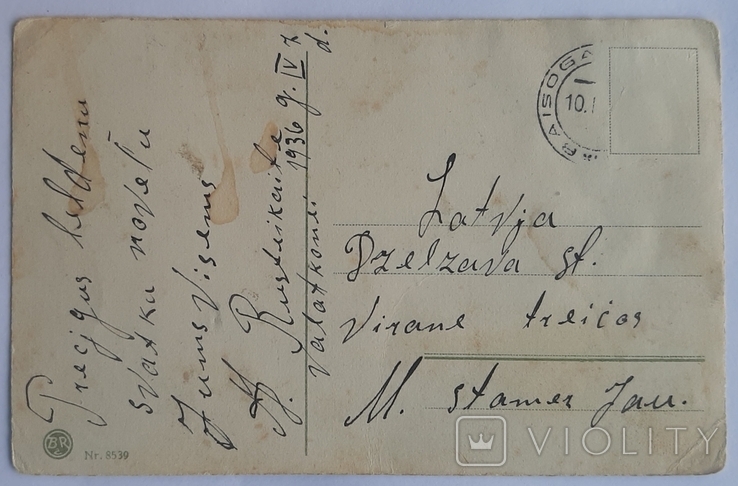 Precigus leldenu
svatku novelu
Jums Visems
Rusteikaite
Valatkonei
1936 g. IV 7 d.
BAISOGA
10. I
Latvja
Dzelzava st.
Virane treicos
M. stamer Jau.
BR
Nr. 8539
VIOLITY